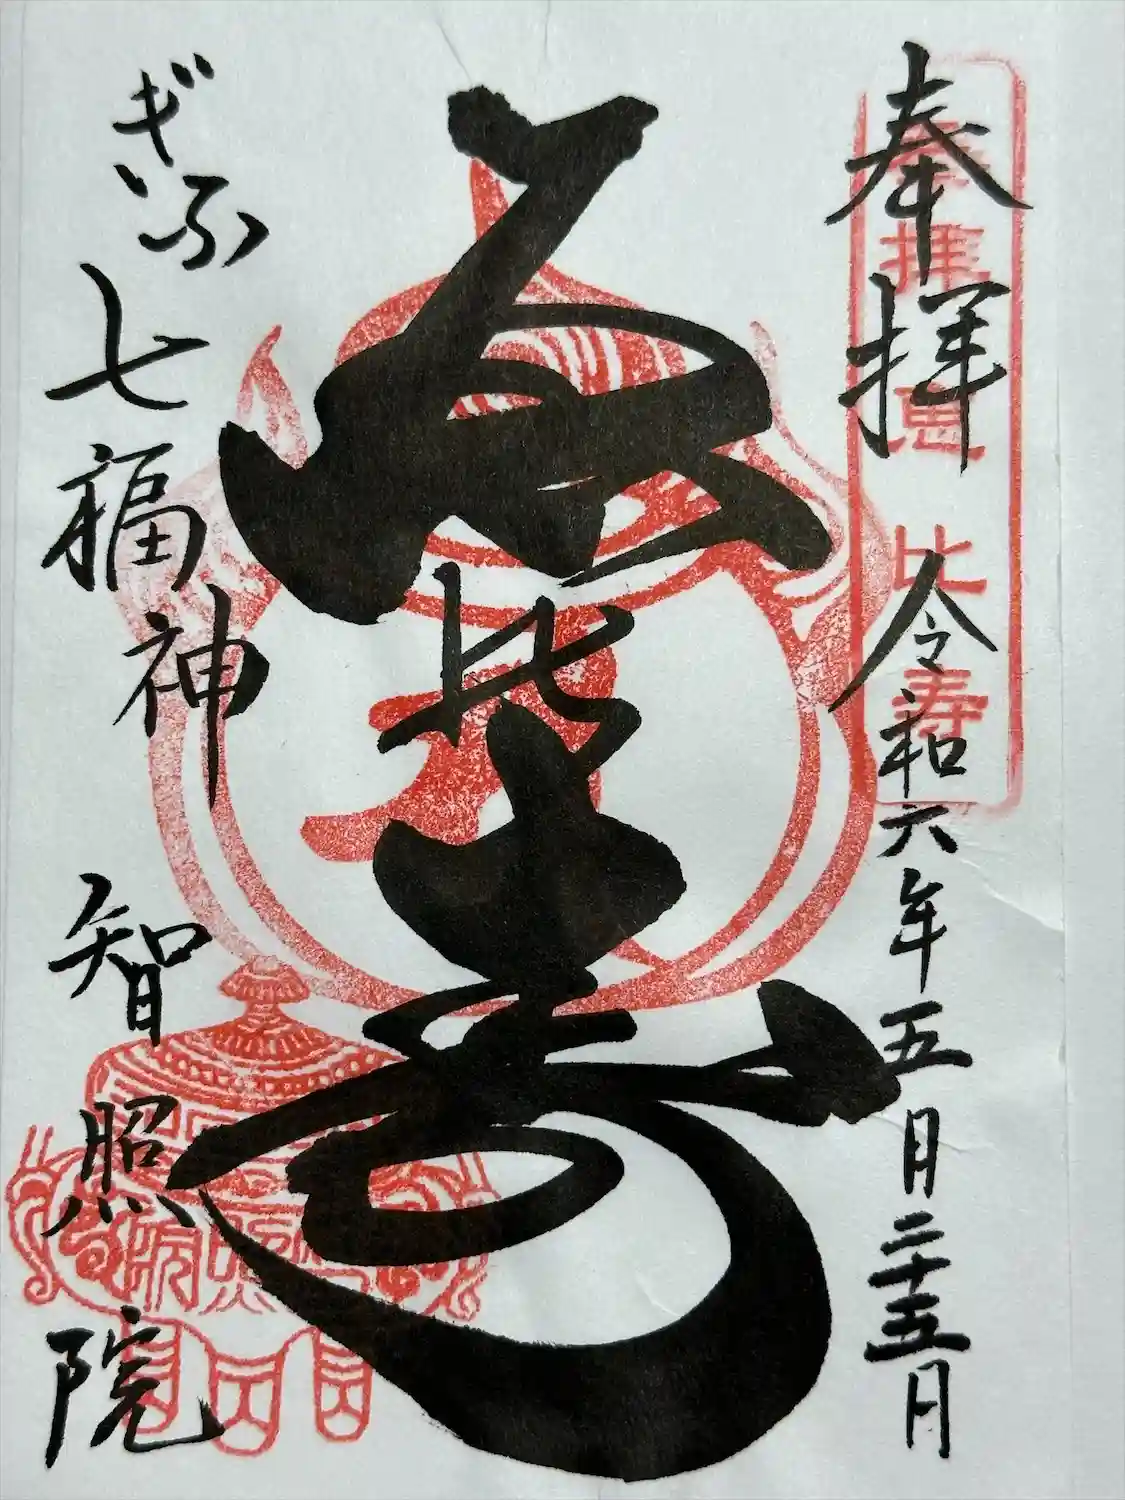 奉拝
令和六年五月二十五日
奉拝 恵比寿
恵比寿
ぎふ七福神
智照院